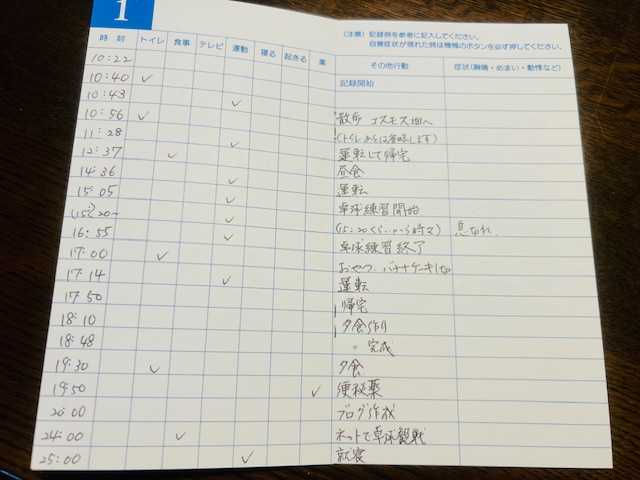 1
(注意) 記録例を参考に記入してください。
自覚症状が現れた時は機器のボタンを必ず押してください。
時 刻 トイレ 食事 テレビ 運動 寝る 起きる 薬 その他行動 症状(胸痛・めまい・動悸など)
10:22 記録開始
10:40 ✓
10:43 ✓ 散歩 コスモス畑へ
10:56 ✓
11:28 ✓ 運転して帰宅
12:37 ✓ 昼食
14:36 ✓ 運転
15:05 ✓ 卓球練習開始
15:20~ ✓ (15:20くらいから時々) 息切れ
16:55 ✓ 卓球練習終了
17:00 ✓ おやつ バナナケーキ
17:14 ✓ 運転
17:50 帰宅
18:10 夕食作り
18:48 〃 完成
19:30 ✓ 夕食
19:50 ✓ 便秘薬
20:00 ブログ作成
24:00 ✓ ネットで卓球観戦
25:00 ✓ 就寝